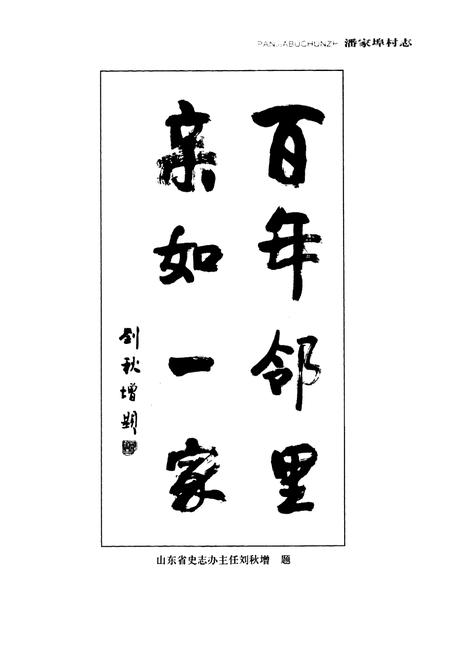 PANJIABUCHUNZHI 潘家埠村志
百年邻里
亲如一家
刘秋增题
山东省史志办主任刘秋增 题